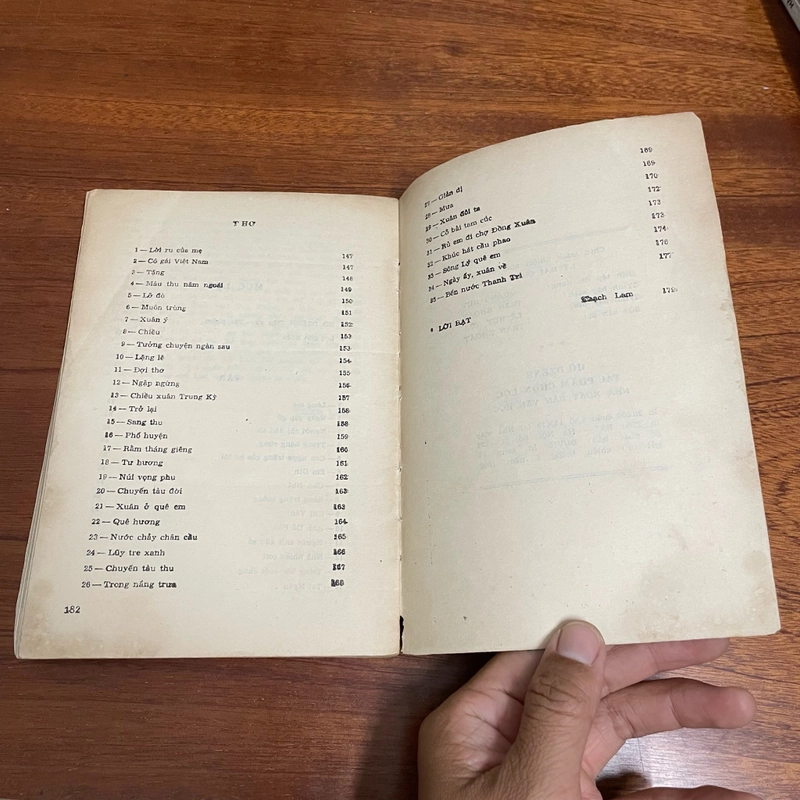 THƠ
1 — Lời ru của mẹ 147
2 — Cô gái Việt Nam 147
3 — Tặng 148
4 — Màu thu năm ngoái 149
5 — Lỡ đò 150
6 — Muôn trùng 151
7 — Xuân ý 152
8 — Chiều 153
9 — Tưởng chuyện ngàn sau 153
10 — Lặng lẽ 154
11 — Đợi thơ 155
12 — Ngập ngừng 156
13 — Chiều xuân Trung Kỳ 157
14 — Trở lại 158
15 — Sang thu 158
16 — Phố huyện 159
17 — Rằm tháng giêng 160
18 — Tư hương 161
19 — Núi vọng phu 162
20 — Chuyến tàu đời 163
21 — Xuân ở quê em 163
22 — Quê hương 164
23 — Nước chảy chân cầu 165
24 — Lũy tre xanh 166
25 — Chuyến tàu thu 167
26 — Trong nắng trưa 168
182
27 — Giản dị 169
28 — Mưa 169
29 — Xuân đôi ta 170
30 — Cỗ bài tam cúc 172
31 — Rủ em đi chợ Đồng Xuân 173
32 — Khúc hát cầu phao 173
33 — Sông Lý quê em 174
34 — Ngày ấy, xuân về 176
35 — Bến nước Thanh Trì 177
* LỜI BẠT Thạch Lam 179